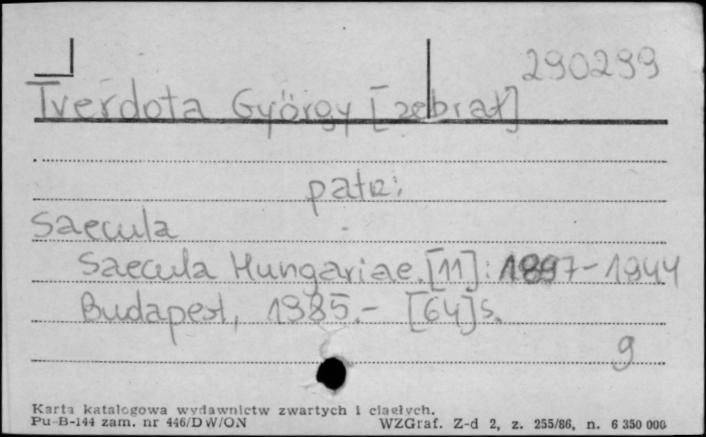 290299
Tverdota György [zebrał]
patrz:
Saecula
Saecula Hungariae. [11]: 1897-1944
Budapest, 1985.- [64]s.
9
Karta katalogowa wydawnictw zwartych i ciągłych.
Pu-B-144 zam. nr 446/DW/ON WZGraf. Z-d 2, z. 255/86, n. 6 350 000